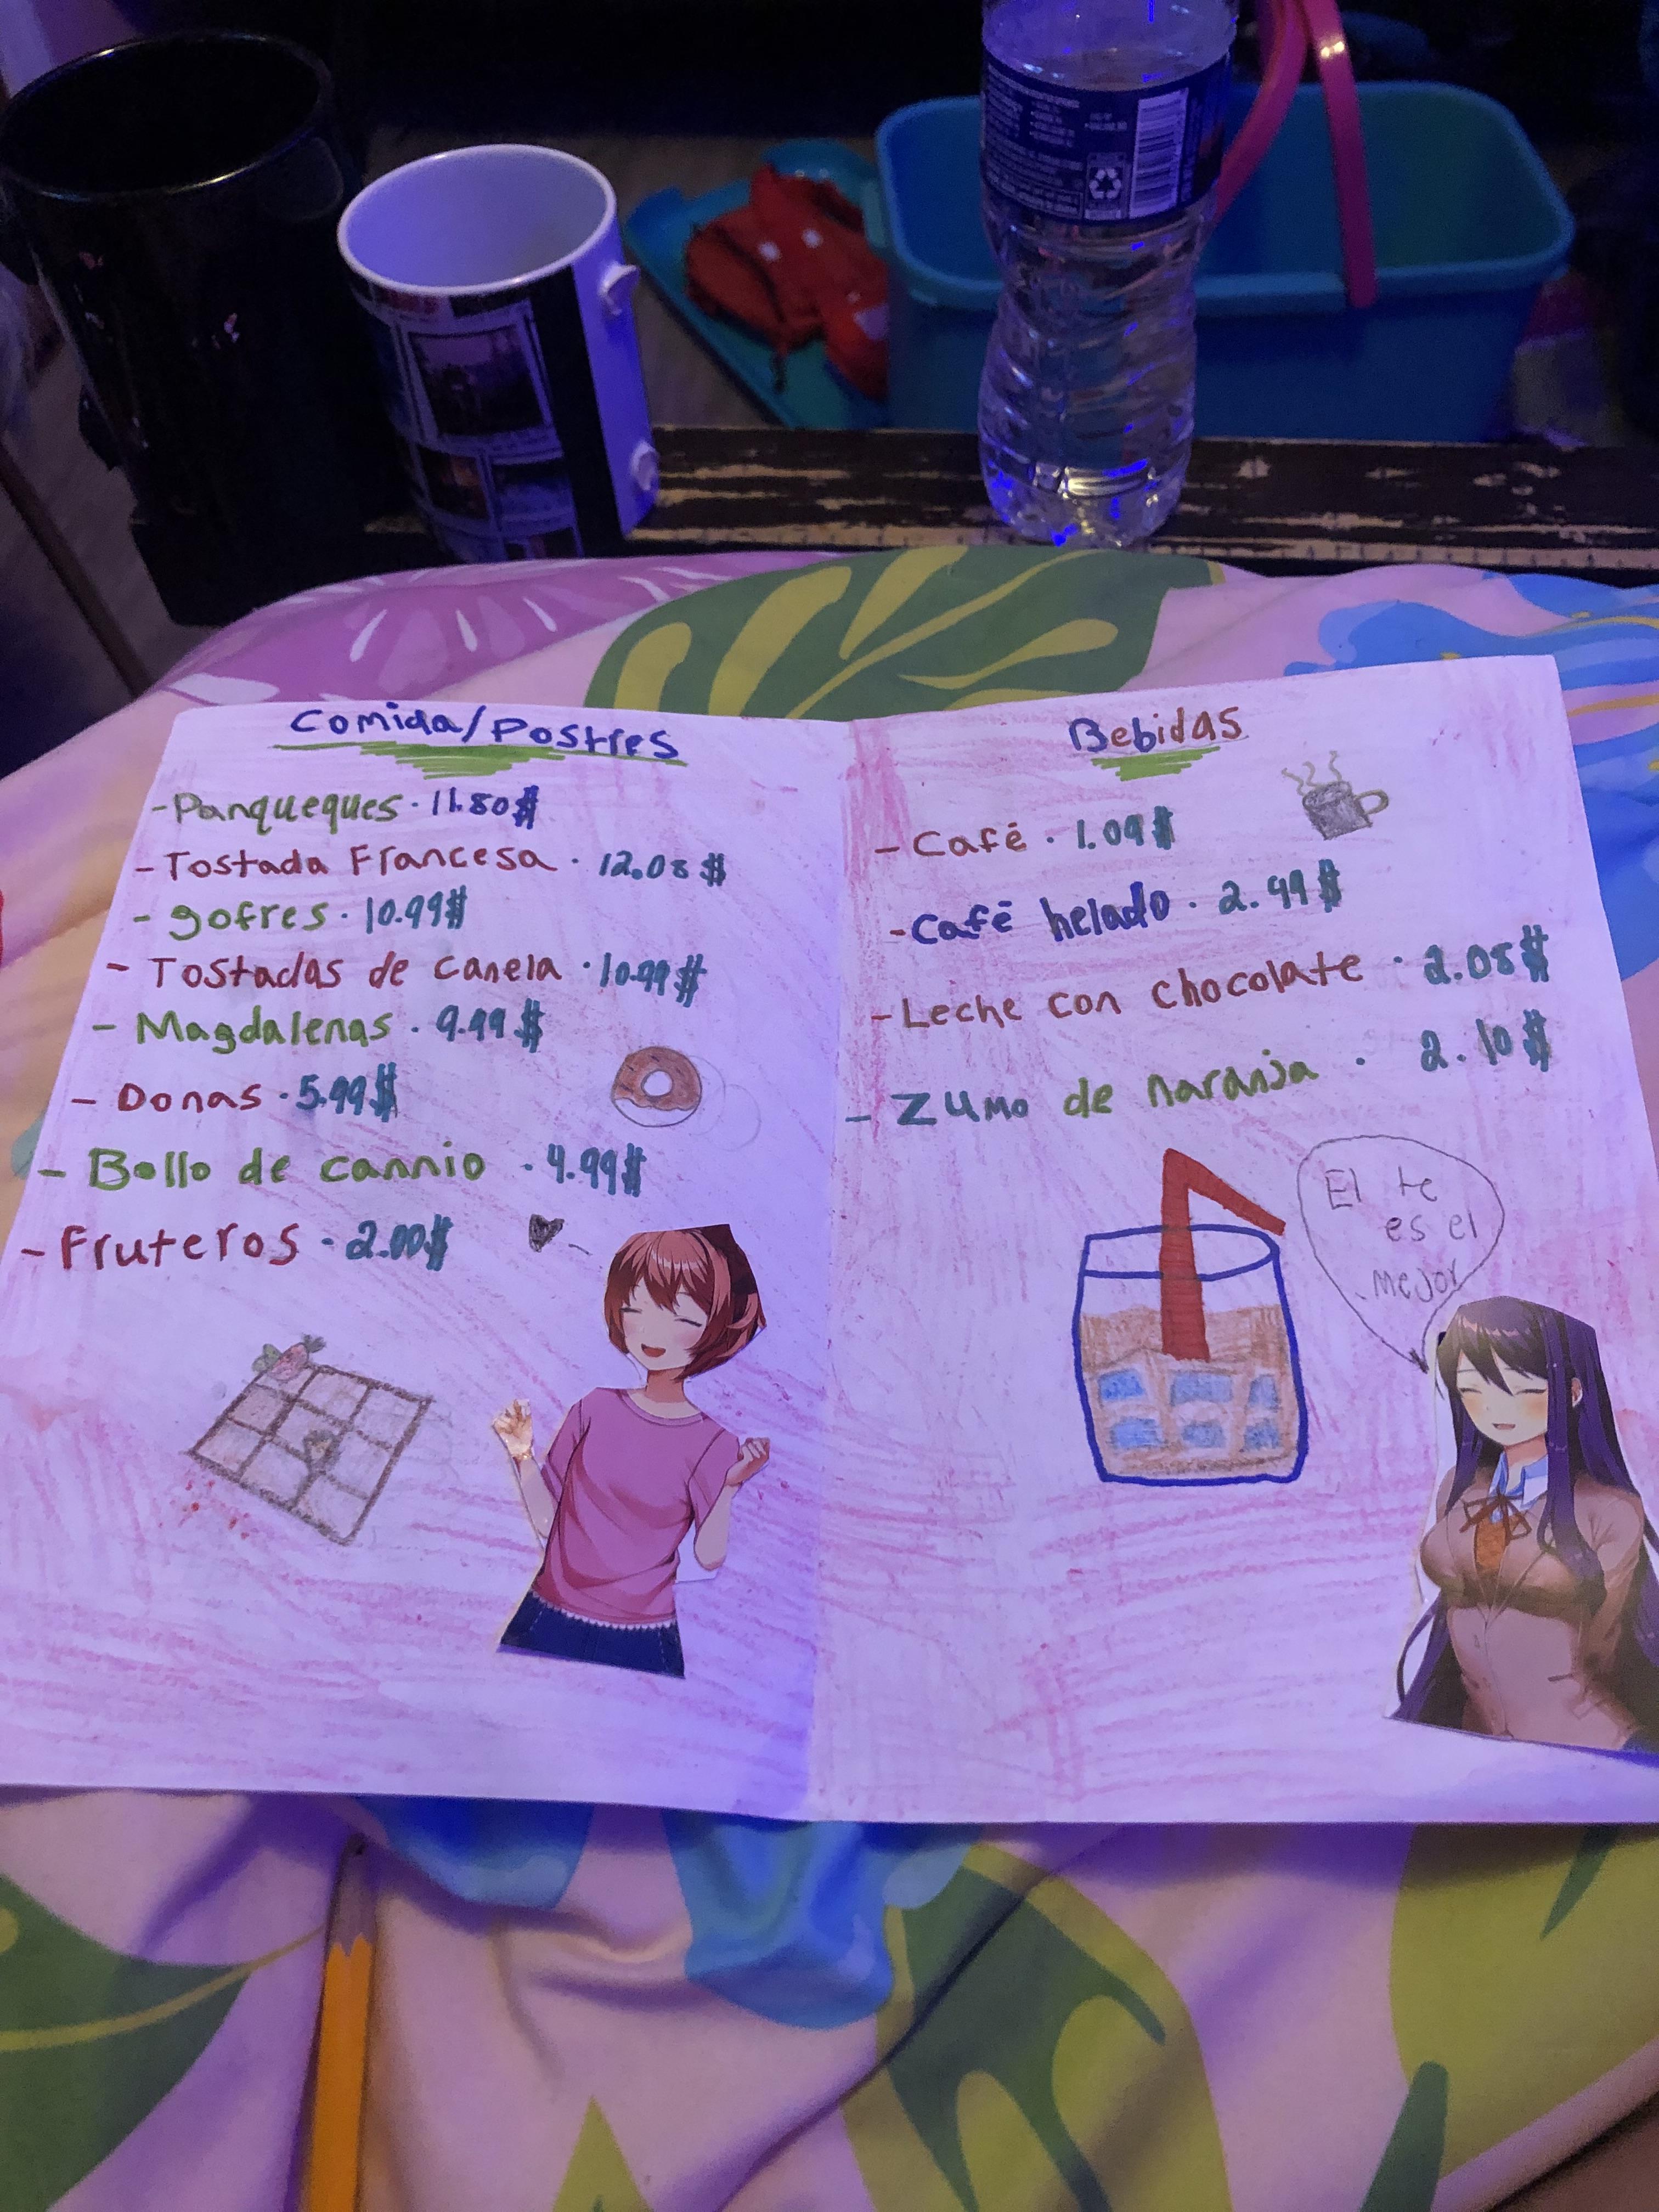 Comida/Postres
-Panqueques · 11.80$
-Tostada Francesa · 12.08$
-gofres · 10.99$
-Tostadas de canela · 10.99$
-Magdalenas · 9.99$
-Donas · 5.99$
-Bollo de cannio · 4.99$
-Fruteros · 2.00$
Bebidas
-Café · 1.09$
-Café helado · 2.99$
-Leche con chocolate · 2.08$
-Zumo de naranja · 2.10$
El te
es el
mejor